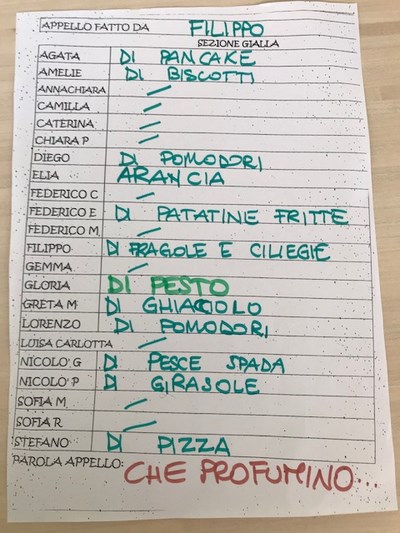 APPELLO FATTO DA FILIPPO
SEZIONE GIALLA
AGATA DI PANCAKE
AMELIE DI BISCOTTI
ANNACHIARA /
CAMILLA /
CATERINA /
CHIARA P /
DIEGO DI POMODORI
ELIA ARANCIA
FEDERICO C /
FEDERICO E DI PATATINE FRITTE
FEDERICO M /
FILIPPO DI FRAGOLE E CILIEGIE
GEMMA /
GLORIA DI PESTO
GRETA M DI GHIACCIOLO
LORENZO DI POMODORI
LUISA CARLOTTA /
NICOLO' G DI PESCE SPADA
NICOLO' P DI GIRASOLE
SOFIA M /
SOFIA R /
STEFANO DI PIZZA
PAROLA APPELLO: CHE PROFUMINO...